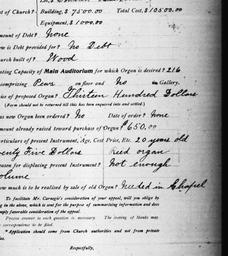 of Church? Building, $ 7500.00 Total Cost, $10500.00
Equipment, $1000.00
mount of Debt? None
ow is Debt provided for? No Debt
urch built of? Wood
ating Capacity of Main Auditorium for which Organ is desired? 216
omprising Pews on floor and No in Gallery.
rice of proposed Organ? Thirteen Hundred Dollars
(Form should not be returned till this has been inquired into and settled)
as new Organ been ordered? No Date of order? None
mount already raised toward purchase of Organ? $650.00
articulars of present Instrument, Age, Cost Price, Etc. 20 years old
enty Five Dollars reed organ
eason for displacing present Instrument? Not enough
olume
ow much is to be realized by sale of old Organ? Needed in Chapel
To facilitate Mr. Carnegie's consideration of your appeal, will you oblige by
ing in the above, and is for the purpose of summarizing information and does
imply favorable consideration of the appeal.
Precise answer to each question is necessary. The issuing of blanks may
correspondence to be filed.
* Application should come from Church authorities and not from private
viduals.
Respectfully,